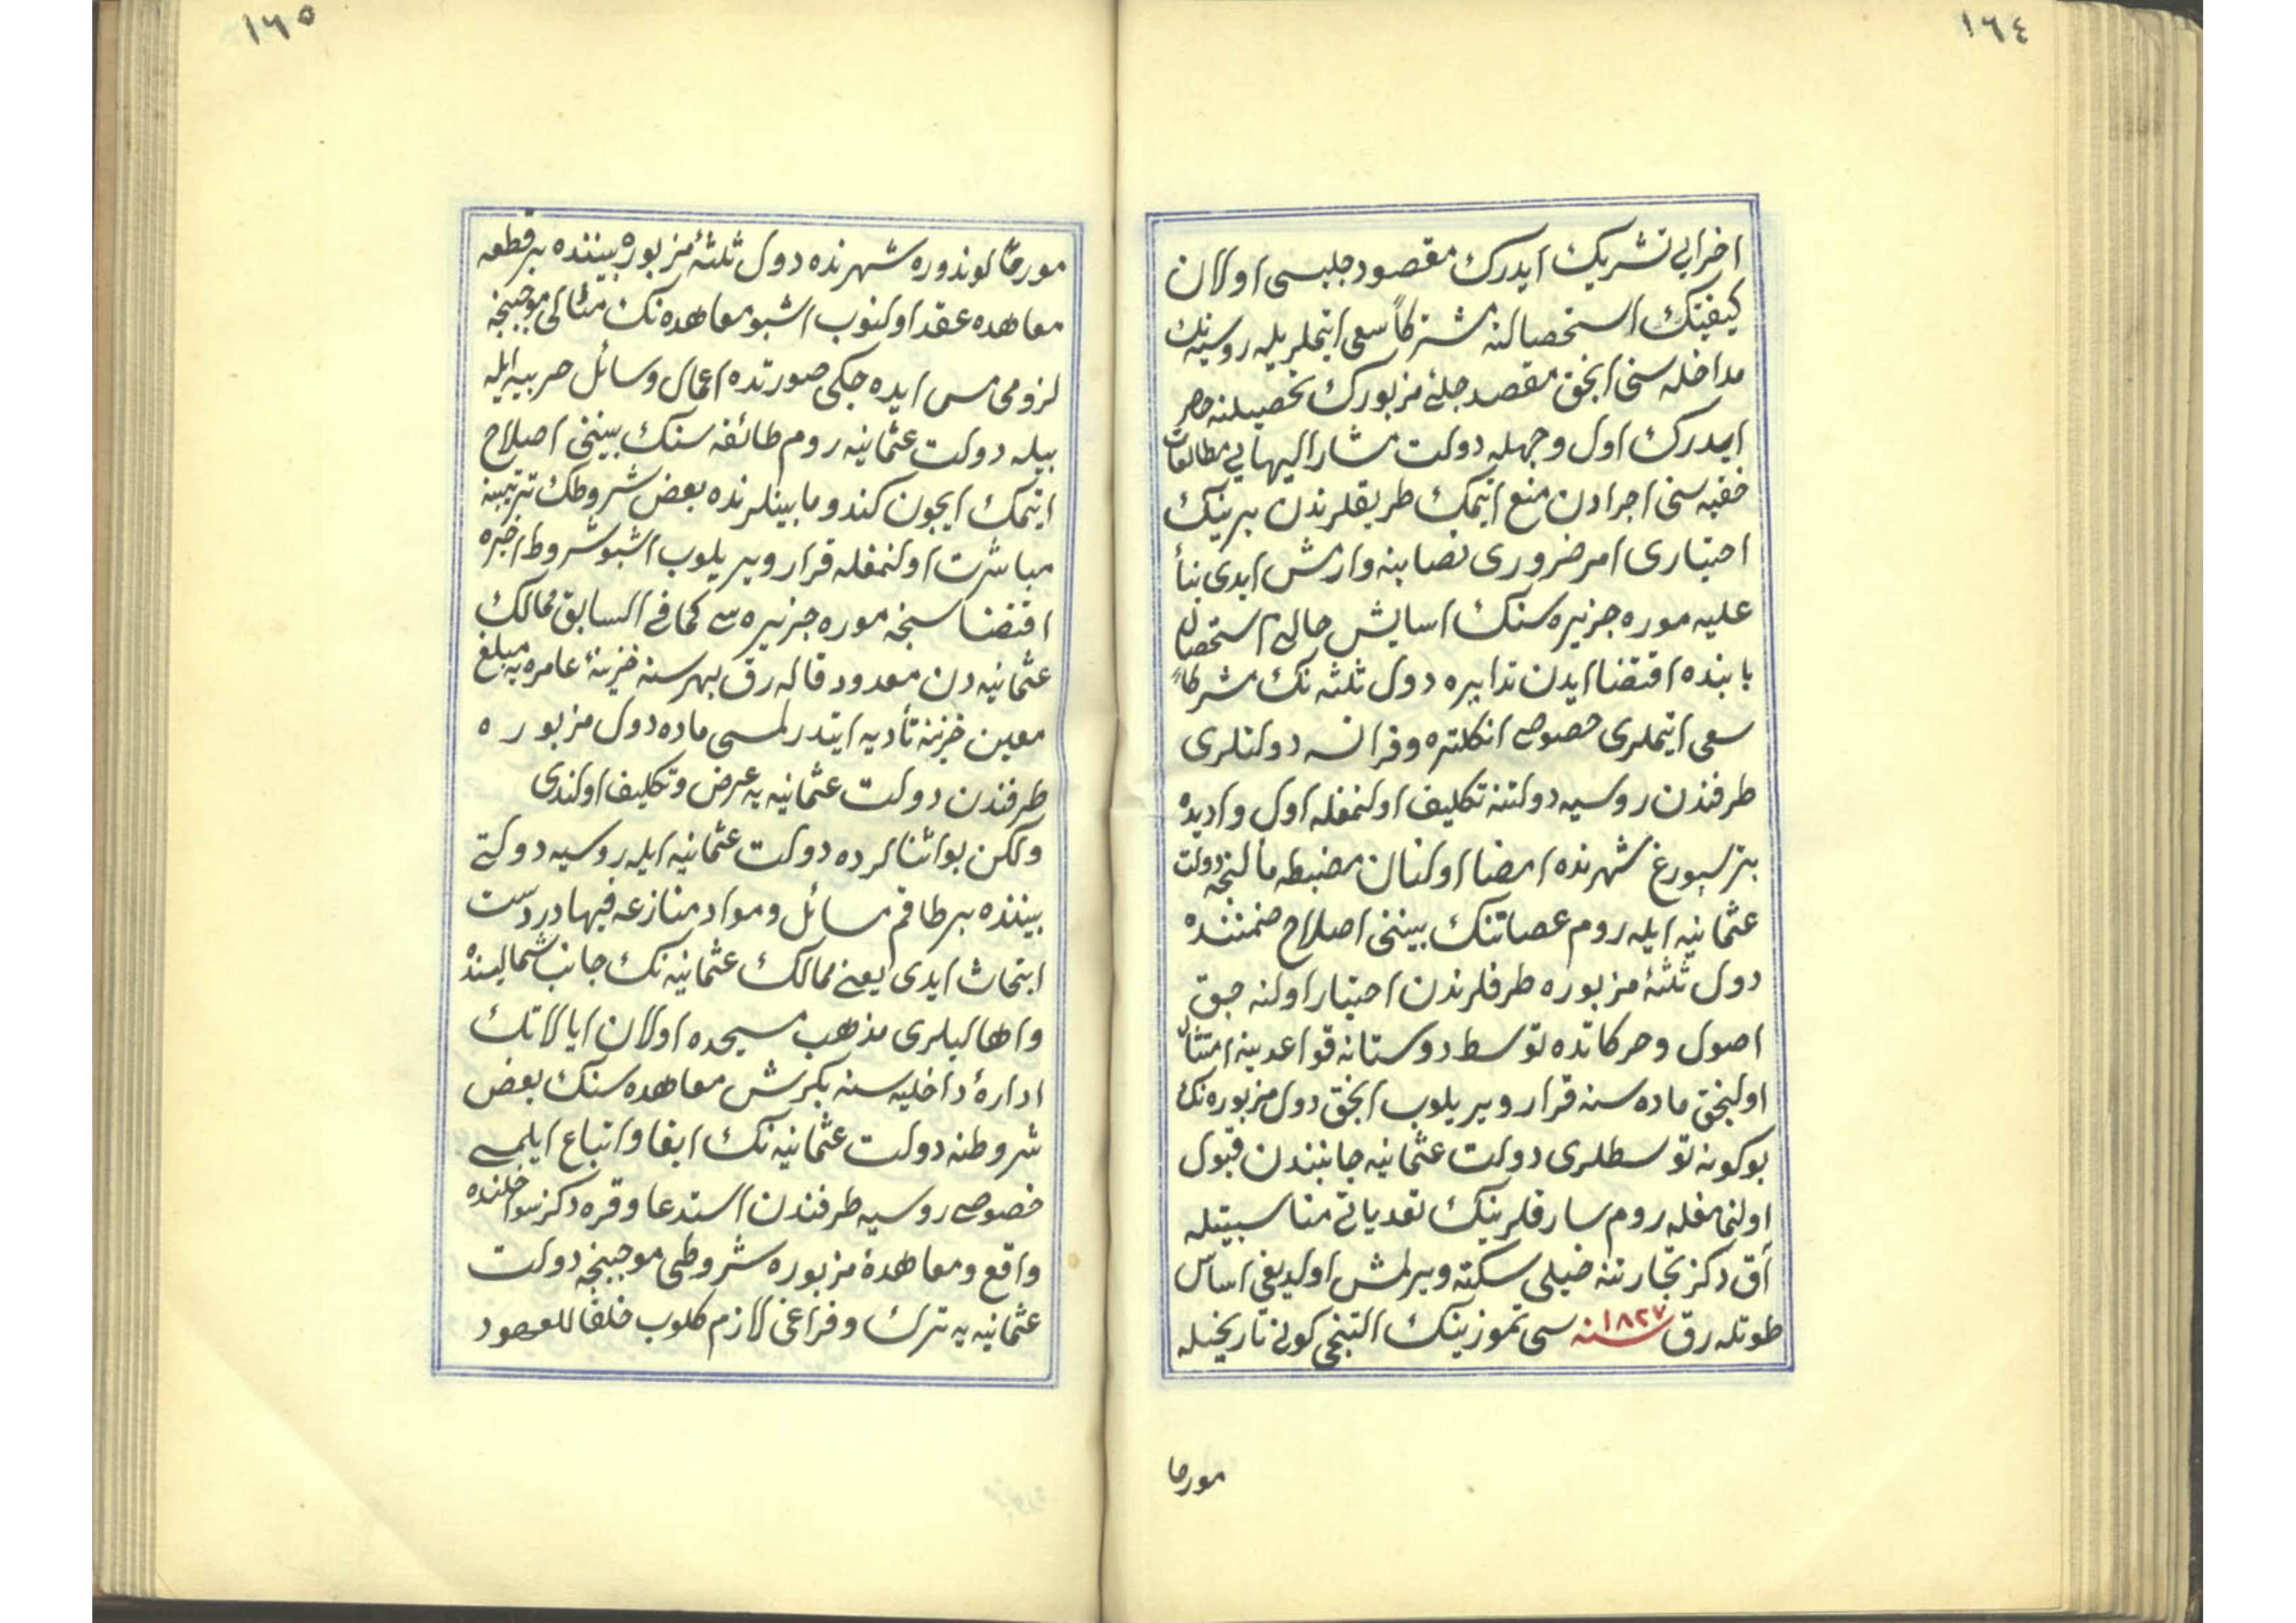 ١٦٤
اخرابی تشریک ایدرک مقصود جلبسی اولان
کیفیتک استحصالنه مشترکاً سعی ایتملریله روسیه‌نک
مداخله سنی انجق مقصد جلیٔ مزبورک تحصیلنه حصر
ایدرک اول وجهله دولت مشار الیهایی مطالعات
خفیه سنی اجرادن منع ایتمک طریقلرندن برینک
اختیاری امر ضروری نصابنه وارمش ایدی بناً
علیه موره جزیره سنک اسایش حالی استحصالی
بابنده اقتضا ایدن تدابیره دول ثلثه نک مشترکاً
سعی ایتملری خصوصی انکلتره و فرانسه دولتلری
طرفندن روسیه دولتنه تکلیف اولنمغله اول وادیده
پترسبورغ شهرنده امضا اولنان مضبطه مآلنجه دولت
عثمانیه ایله روم عصاتنک بیننی اصلاح ضمننده
دول ثلثهٔ مزبوره طرفلرندن اختیار اولنه جق
اصول و حرکاتده توسط دوستانه قواعدینه امتثال
اولنجق ماده سنه قرار ویریلوب انجق دول مزبوره نک
بوکونه توسطلری دولت عثمانیه جانبندن قبول
اولنمامغله روم سارقلرینک تعدیاتی مناسبتیله
آق دکز تجارتنه خیلی سکته ویرلمش اولدیغی اساس
طوتله رق سنه ١٨٢٧ سی تموزینک التنجی کونی تاریخیله
مورخا
١٦٥
مورخاً لوندوره شهرنده دول ثلثهٔ مزبوره بیننده بر قطعه
معاهده عقد اولنوب اشبو معاهده نک منالی موجبنجه
لزومی مس ایده جکی صورتده اعمال وسائل حربیه ایله
بیله دولت عثمانیه روم طائفه سنک بیننی اصلاح
ایتمک ایچون کندو مابینلرنده بعض شروطک ترتیبنه
مباشرت اولنمغله قرار ویریلوب اشبو شروط اخیره
اقتضاسنجه موره جزیره سی کمافی السابق ممالک
عثمانیه دن معدود قاله رق بهر سنه خزینهٔ عامره یه مبلغ
معین خزینه تأدیه ایتدرلمسی ماده دول مزبوره
طرفندن دولت عثمانیه یه عرض و تکلیف اولندی
ولکن بو اثنالرده دولت عثمانیه ایله روسیه دولتی
بیننده بر طاقم مسائل و مواد منازعه فیها در دست
ابتحاث ایدی یعنی ممالک عثمانیه نک جانب شمالیسنده
واهالیلری مذهب مسیحده اولان ایالاتک
ادارهٔ داخلیه سنه بکرش معاهده سنک بعض
شروطنه دولت عثمانیه نک ایفا و اتباع ایلمسی
خصوصی روسیه طرفندن استدعا و قره دکز سواحلنده
واقع و معاهدهٔ مزبوره شروطی موجبنجه دولت
عثمانیه یه ترک و فراغی لازم کلوب خلفا للعهود